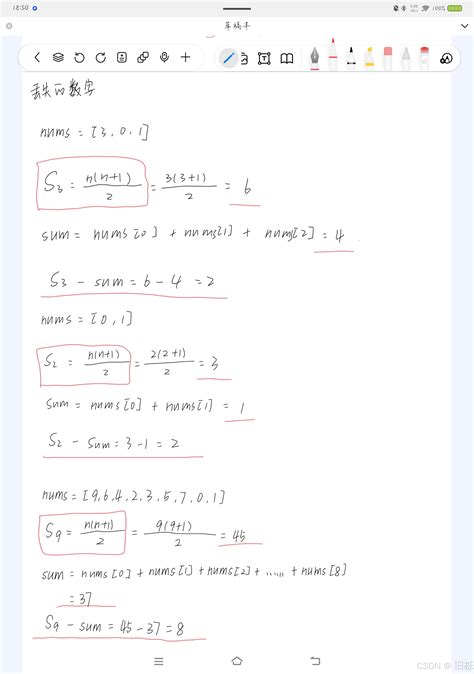 18:50
100%
草稿本
丢失的数字
nums = [3, 0, 1]
S3 = n(n+1)/2 = 3(3+1)/2 = 6
sum = nums[0] + nums[1] + nums[2] = 4
S3 - sum = 6 - 4 = 2
nums = [0, 1]
S2 = n(n+1)/2 = 2(2+1)/2 = 3
sum = nums[0] + nums[1] = 1
S2 - sum = 3 - 1 = 2
nums = [9,6,4,2,3,5,7,0,1]
S9 = n(n+1)/2 = 9(9+1)/2 = 45
sum = nums[0] + nums[1] + nums[2] + ...... + nums[8]
= 37
S9 - sum = 45 - 37 = 8
CSDN @旧栎